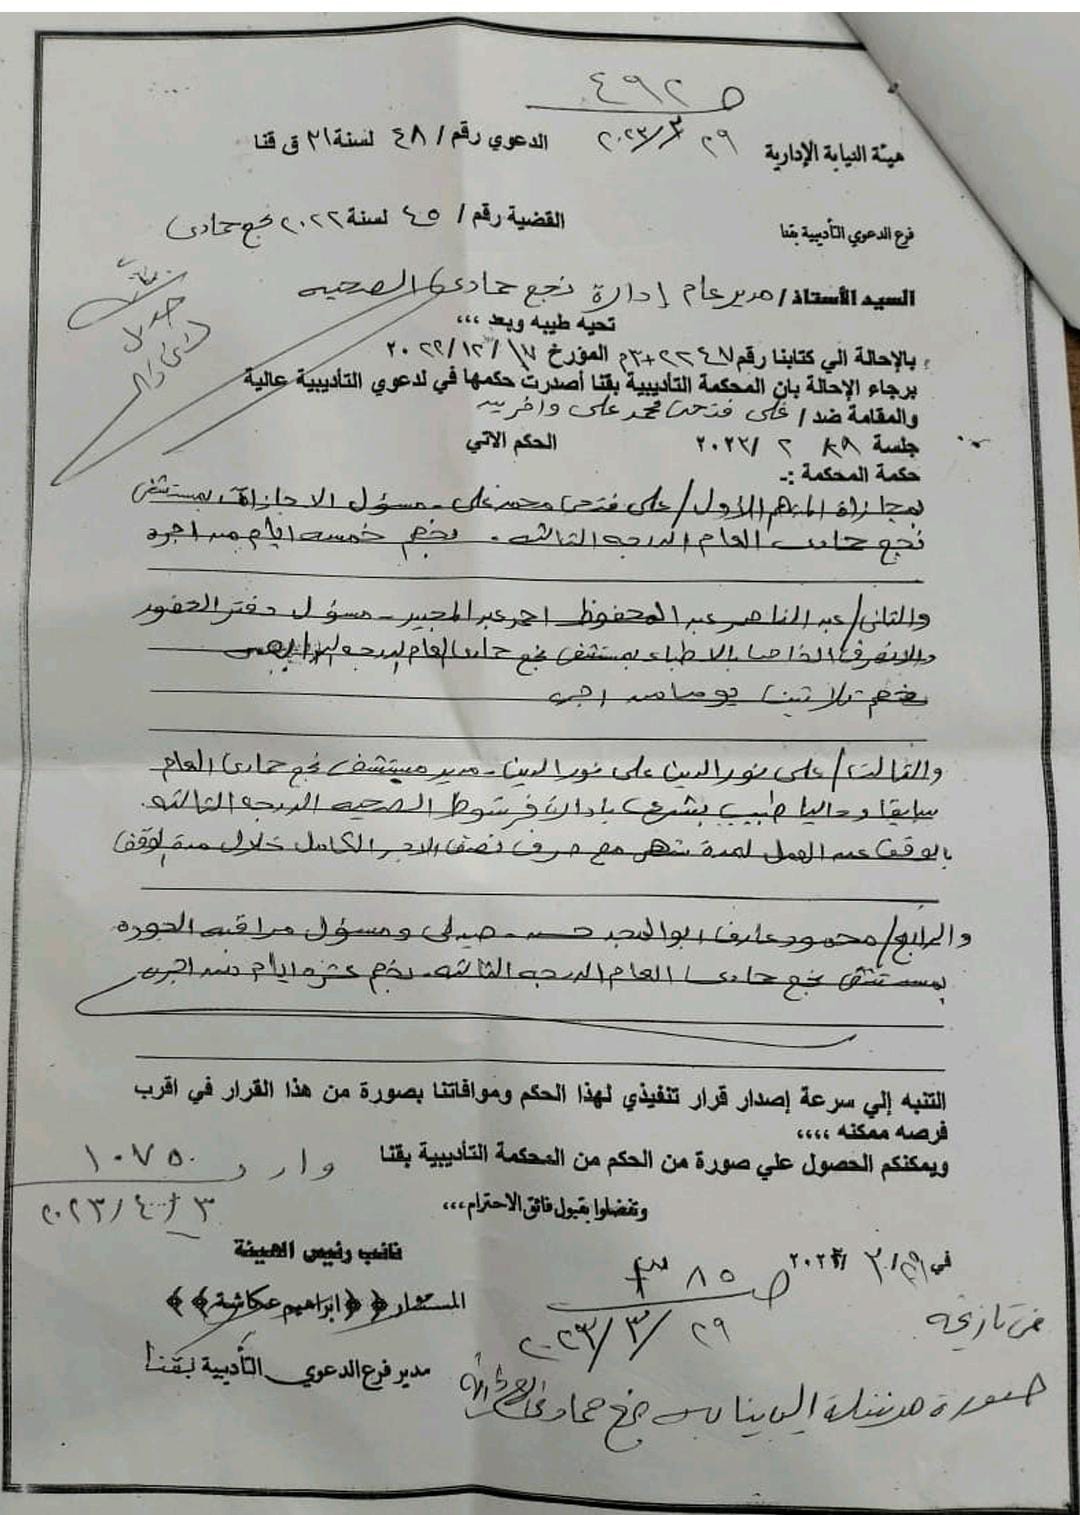 ص ٤٩٢
٢٠٢٣/٣/٢٩
هيئة النيابة الإدارية
الدعوي رقم/ ٤٨ لسنة ٣١ ق قنا
فرع الدعوي التأديبية بقنا
القضية رقم / ٤٥ لسنة ٢٠٢٢ نجع حمادى
السيد الأستاذ/ مدير عام إدارة نجع حمادى الصحيه
تحيه طيبه وبعد ،،،
بالإحالة الي كتابنا رقم المؤرخ ١٧/١٢/٢٠٢٢
برجاء الإحالة بان المحكمة التأديبية بقنا أصدرت حكمها في لدعوي التأديبية عالية
والمقامة ضد/ على فتحى محمد على واخرين
جلسة ٢٠٢٣/ ٢ / الحكم الاتي
حكمة المحكمة :ـ
بمجازاة المتهم الأول/ على فتحى محمد على - مسؤل الاجازات بمستشفى
نجع حمادى العام الدرجه الثالثه - بخصم خمسه ايام من اجره
والثانى/ عبد الناصر عبد المحفوظ احمد عبد المجيد - مسؤل دفتر الحضور
والانصراف الخاص بالاطباء بمستشفى نجع حمادى العام الدرجه
بخصم ثلاثين يوما من اجره
والثالث/ على نور الدين على نور الدين - مدير مستشفى نجع حمادى العام
سابقا وحاليا طبيب بشرى بادارة فرشوط الصحيه الدرجه الثالثه
بالوقف عن العمل لمدة شهر مع صرف نصف الاجر الكامل خلال مدة الوقف
والرابع/ محمود عارف ابو المجد حسن - صيدلى ومسؤل مراقبه الجوده
بمستشفى نجع حمادى العام الدرجه الثالثه - بخصم عشره ايام من اجره
التنبه إلي سرعة إصدار قرار تنفيذي لهذا الحكم وموافاتنا بصورة من هذا القرار في اقرب
فرصه ممكنه ،،،،
ويمكنكم الحصول علي صورة من الحكم من المحكمة التأديبية بقنا
وارد ١٠٧٥٠
٢٠٢٣/٤/٣
وتفضلوا بقبول فائق الاحترام،،،
نائب رئيس الهيئة
في ٢٩/٣/٢٠٢٣
المستشار ﴿﴿ ابراهيم عكاشة ﴾﴾
٢٠٢٣/٣/٢٩
فى تاريخه
مدير فرع الدعوي التأديبية بقنا
صورة مرسلة الى نيابه نجع حمادى